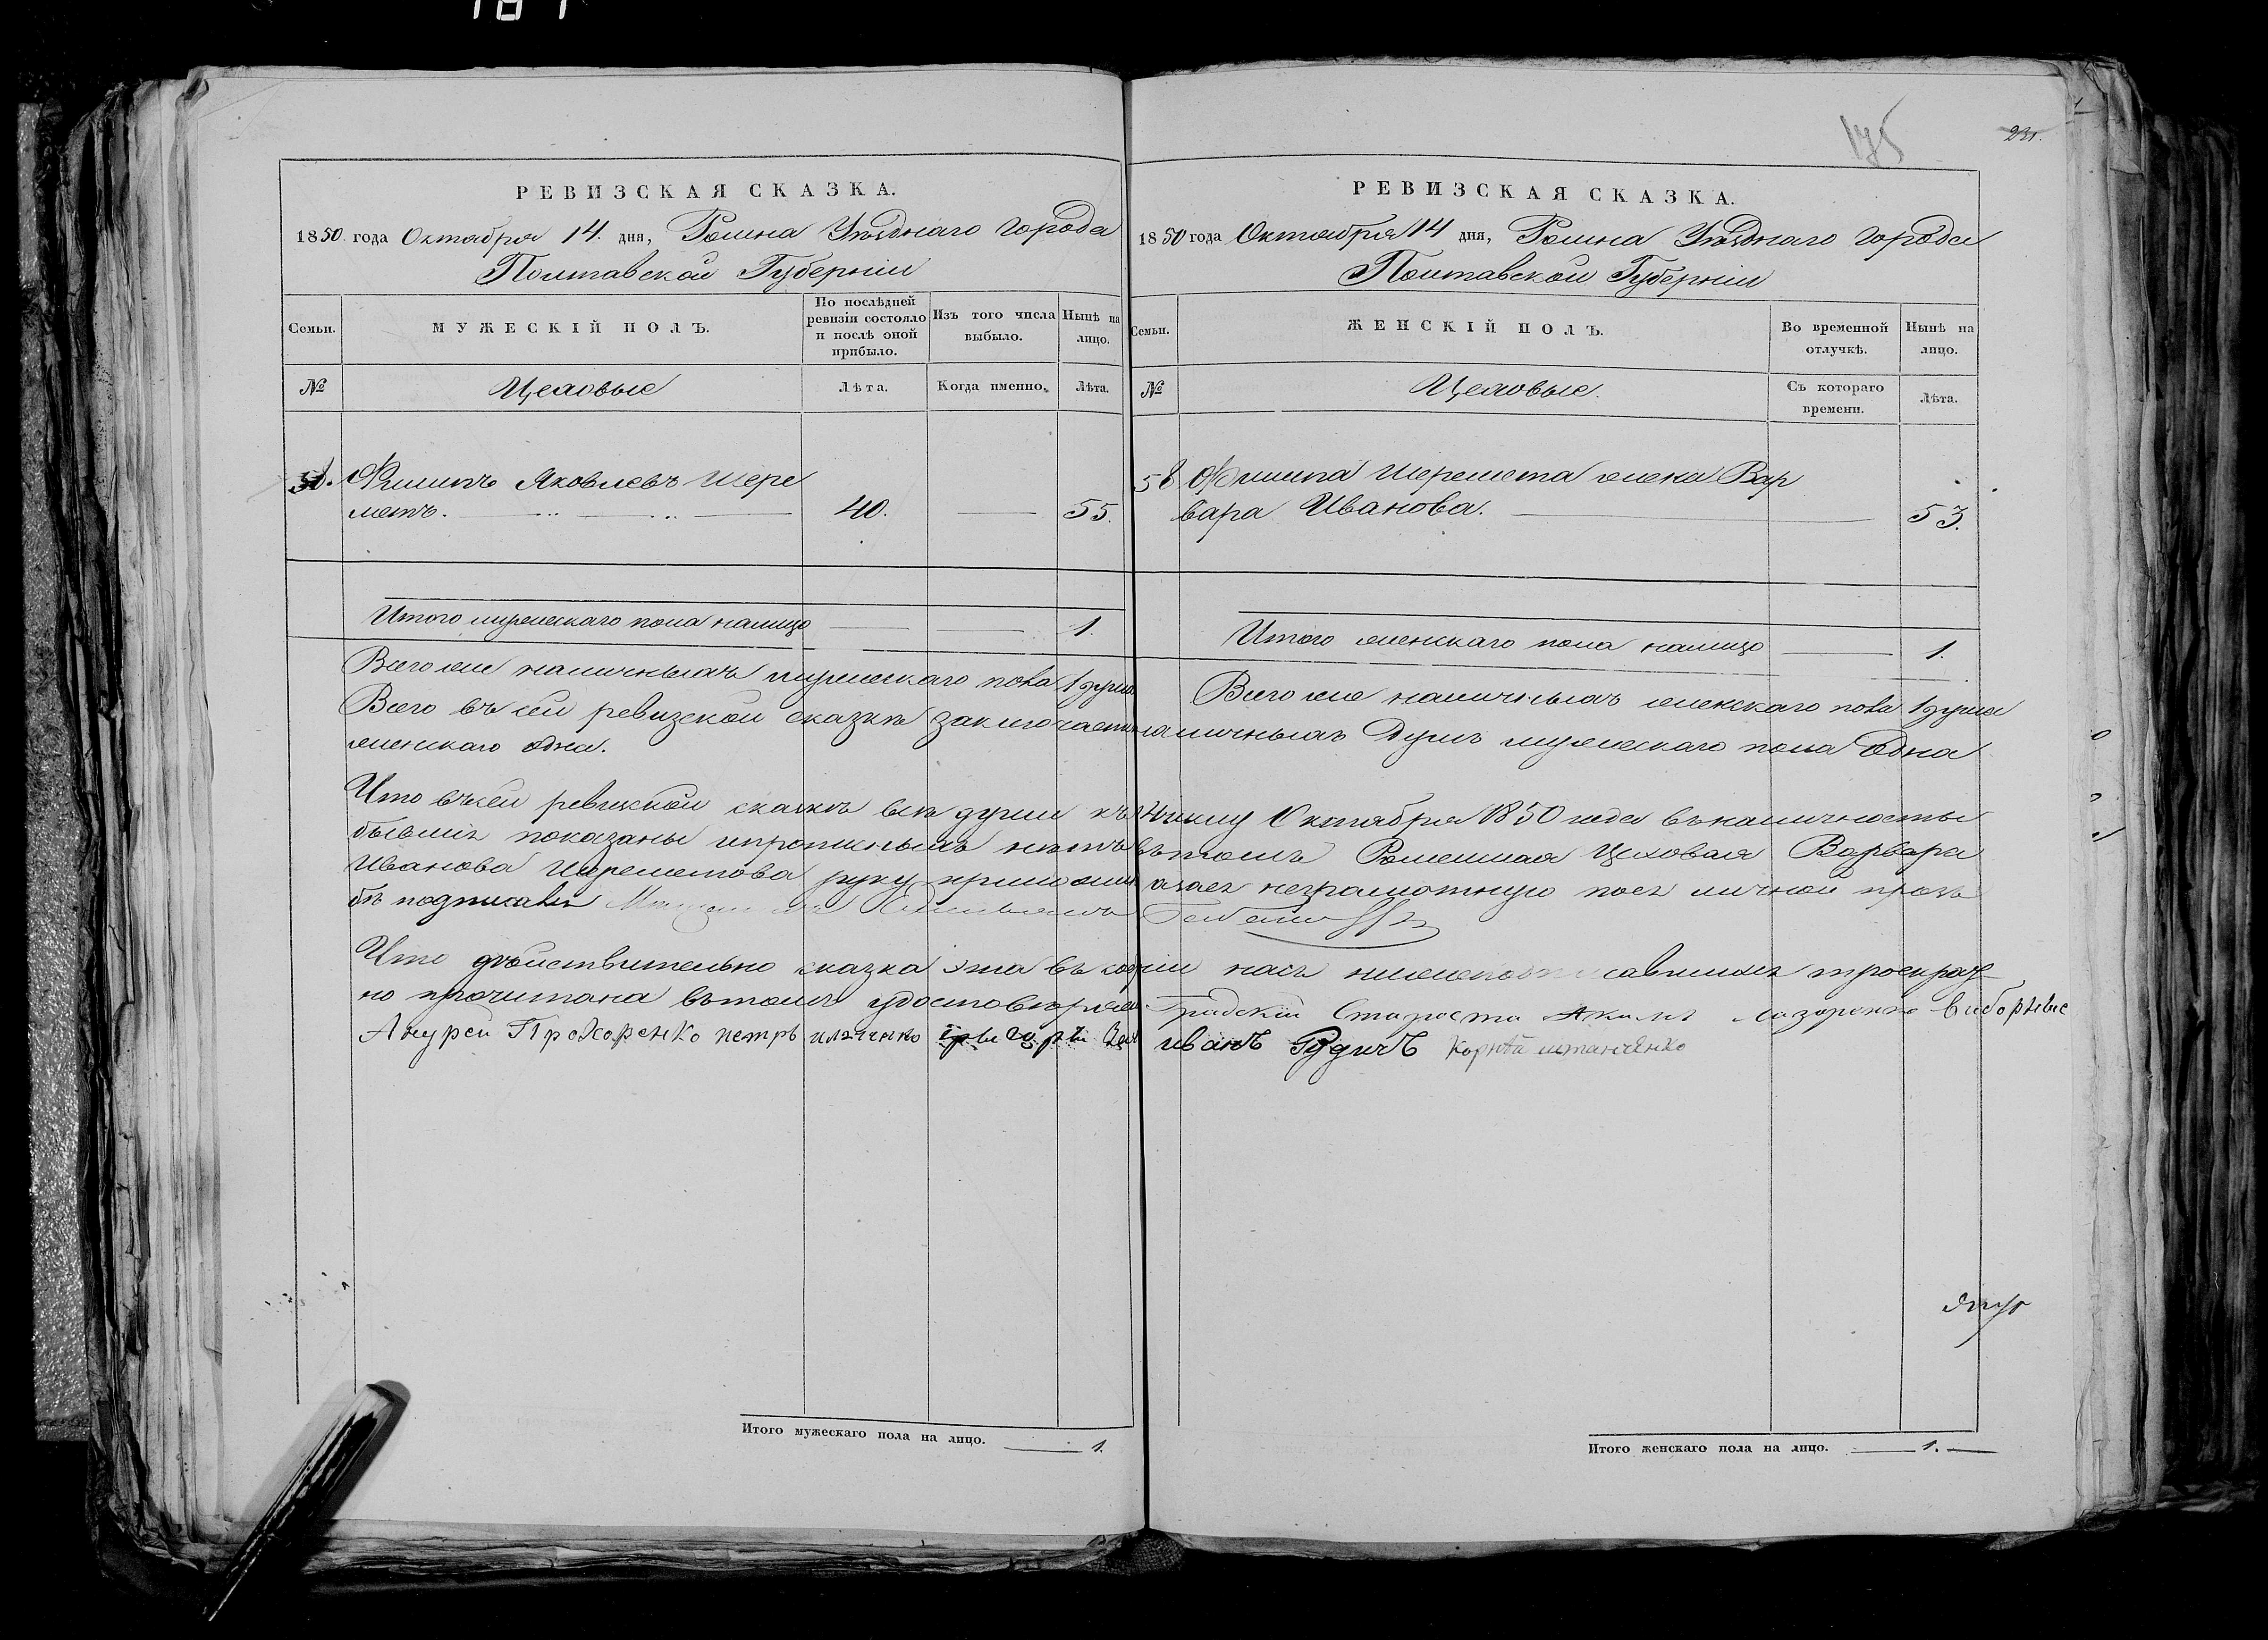 175
231.
РЕВИЗСКАЯ СКАЗКА.
1850 года Октября 14. дня, Ромна Уѣзднаго города
Полтавской Губерніи
Семьи.
МУЖЕСКІЙ ПОЛЪ.
По послѣдней ревизіи состояло и послѣ оной прибыло.
Изъ того числа выбыло.
Нынѣ на лицо.
№
Цеховые
Лѣта.
Когда именно.
Лѣта.
Филипъ Яковлевъ Шере
метъ. 40. 55.
Итого мужескаго пола налицо 1.
Всего же наличныхъ мужескаго пола 1 душа
РЕВИЗСКАЯ СКАЗКА.
1850 года Октября 14 дня, Ромна Уѣзднаго города
Полтавской Губерніи
Семьи.
ЖЕНСКІЙ ПОЛЪ.
Во временной отлучкѣ.
Нынѣ на лицо.
№
Цеховые.
Съ котораго времени.
Лѣта.
58 Филипа Шеремета жена Вар
вара Иванова. 53.
Итого женскаго пола налицо 1.
Всего же наличныхъ женскаго пола 1 душа
Всего въ сей ревизской сказкѣ заключается наличныхъ душъ мужескаго пола одна
женскаго одна.
Что въ сей ревизской сказкѣ всѣ души къ числу Октября 1850 года въ наличности
бывшіе показаны и прописныхъ нѣтъ въ томъ Роменская Цеховая Варвара
Иванова Шереметова руку приложила а за ее неграмотную по ее личной прозь
бѣ подписалъ
Что дѣйствительно сказка эта въ собраніи насъ нижеподписавшихся троекрат
но прочитана въ томъ удостовѣряемъ Градскій Староста Акимъ Лазоренко виборные
Андрей Прохоренко петръ иванъ Рудичъ Корнѣй
Итого мужескаго пола на лицо. 1.
Итого женскаго пола на лицо. 1.